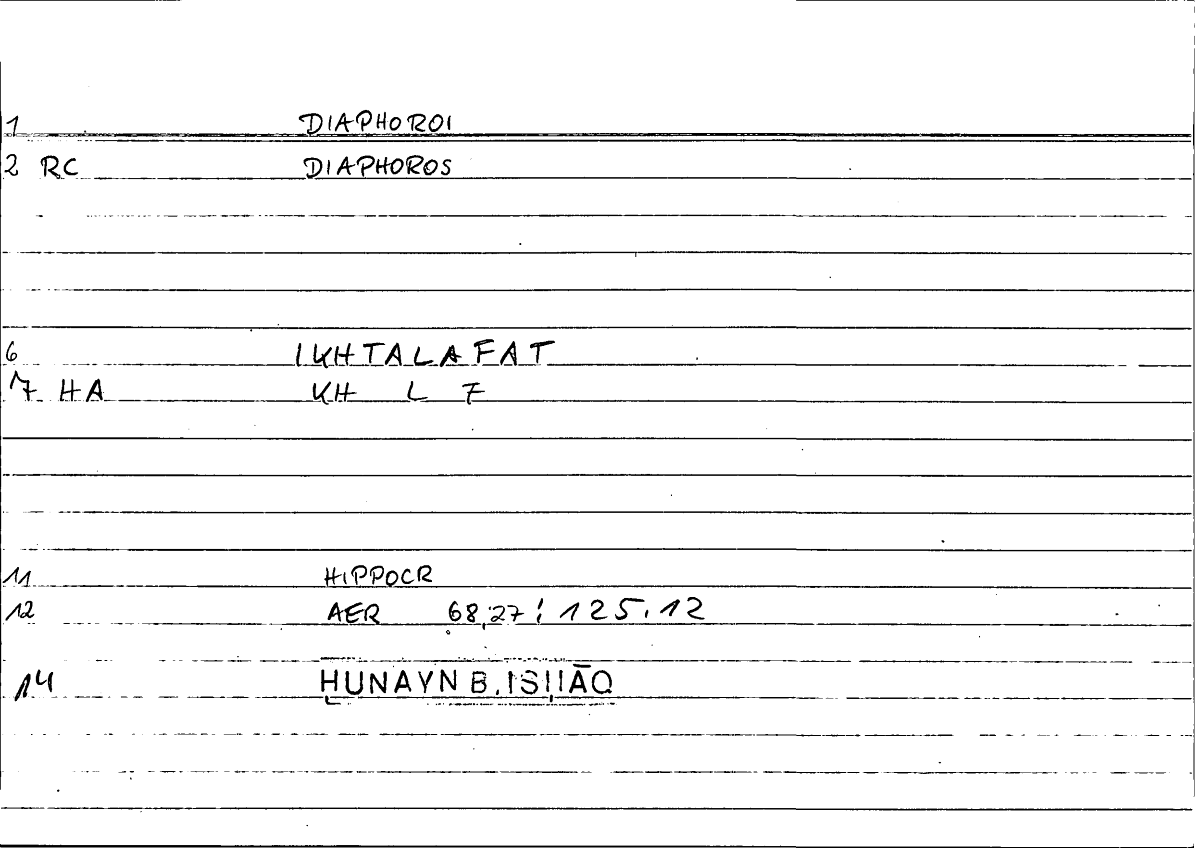 1 DIAPHOROI
2 RC DIAPHOROS
6 IKHTALAFAT
7 HA KH L F
11 HIPPOCR
12 AER 68,27; 125.12
14 ḤUNAYN B. ISḤĀQ